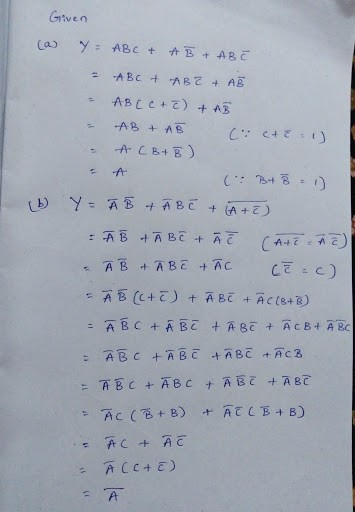 Given
(a) Y = ABC + AB̅ + ABC̅
= ABC + ABC̅ + AB̅
= AB(C + C̅) + AB̅
= AB + AB̅ (∵ C + C̅ = 1)
= A (B + B̅)
= A (∵ B + B̅ = 1)
(b) Y = A̅ B̅ + A̅ B C̅ + (A̅ ̅+̅ ̅C̅)
= A̅ B̅ + A̅ B C̅ + A̅ C̿ (A̅ ̅+̅ ̅C̅ = A̅ C̿)
= A̅ B̅ + A̅ B C̅ + A̅ C (C̿ = C)
= A̅ B̅ (C + C̅) + A̅ B C̅ + A̅ C (B + B̅)
= A̅ B̅ C + A̅ B̅ C̅ + A̅ B C̅ + A̅ C B + A̅ B̅ C
= A̅ B̅ C + A̅ B̅ C̅ + A̅ B C̅ + A̅ C B
= A̅ B̅ C + A̅ B C + A̅ B̅ C̅ + A̅ B C̅
= A̅ C (B̅ + B) + A̅ C̅ (B̅ + B)
= A̅ C + A̅ C̅
= A̅ (C + C̅)
= A̅